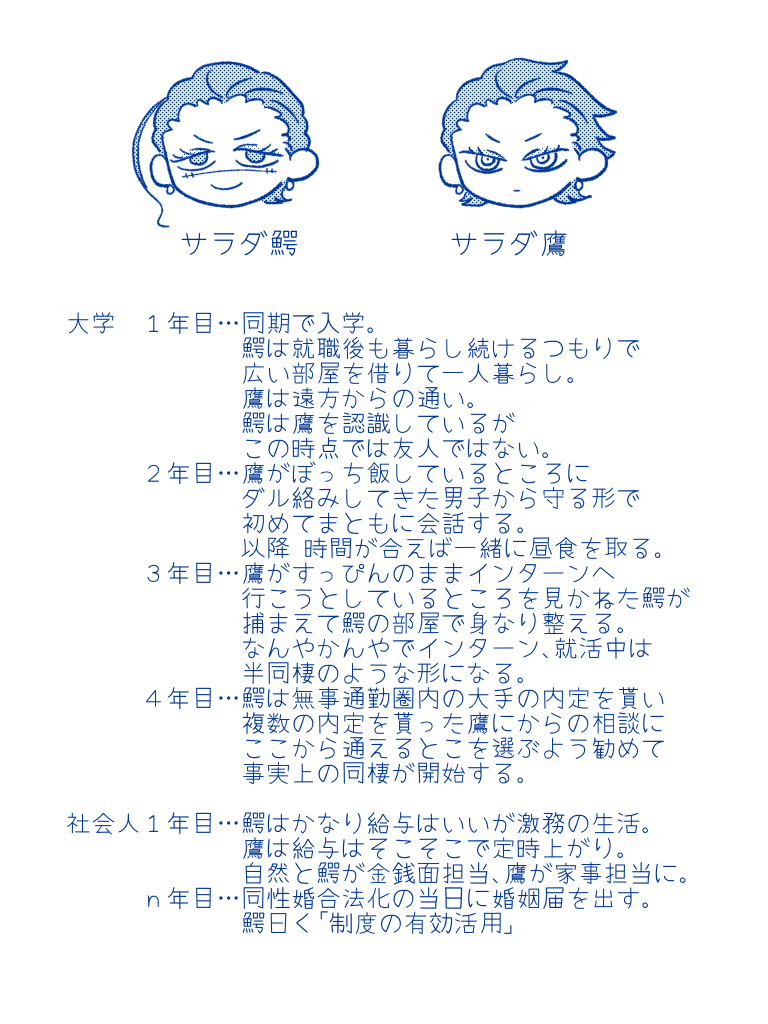 サラダ鰐
サラダ鷹
大学　１年目…同期で入学。
鰐は就職後も暮らし続けるつもりで
広い部屋を借りて一人暮らし。
鷹は遠方からの通い。
鰐は鷹を認識しているが
この時点では友人ではない。
２年目…鷹がぼっち飯しているところに
ダル絡みしてきた男子から守る形で
初めてまともに会話する。
以降 時間が合えば一緒に昼食を取る。
３年目…鷹がすっぴんのままインターンへ
行こうとしているところを見かねた鰐が
捕まえて鰐の部屋で身なり整える。
なんやかんやでインターン、就活中は
半同棲のような形になる。
４年目…鰐は無事通勤圏内の大手の内定を貰い
複数の内定を貰った鷹にからの相談に
ここから通えるとこを選ぶよう勧めて
事実上の同棲が開始する。
社会人１年目…鰐はかなり給与はいいが激務の生活。
鷹は給与はそこそこで定時上がり。
自然と鰐が金銭面担当、鷹が家事担当に。
ｎ年目…同性婚合法化の当日に婚姻届を出す。
鰐曰く「制度の有効活用」